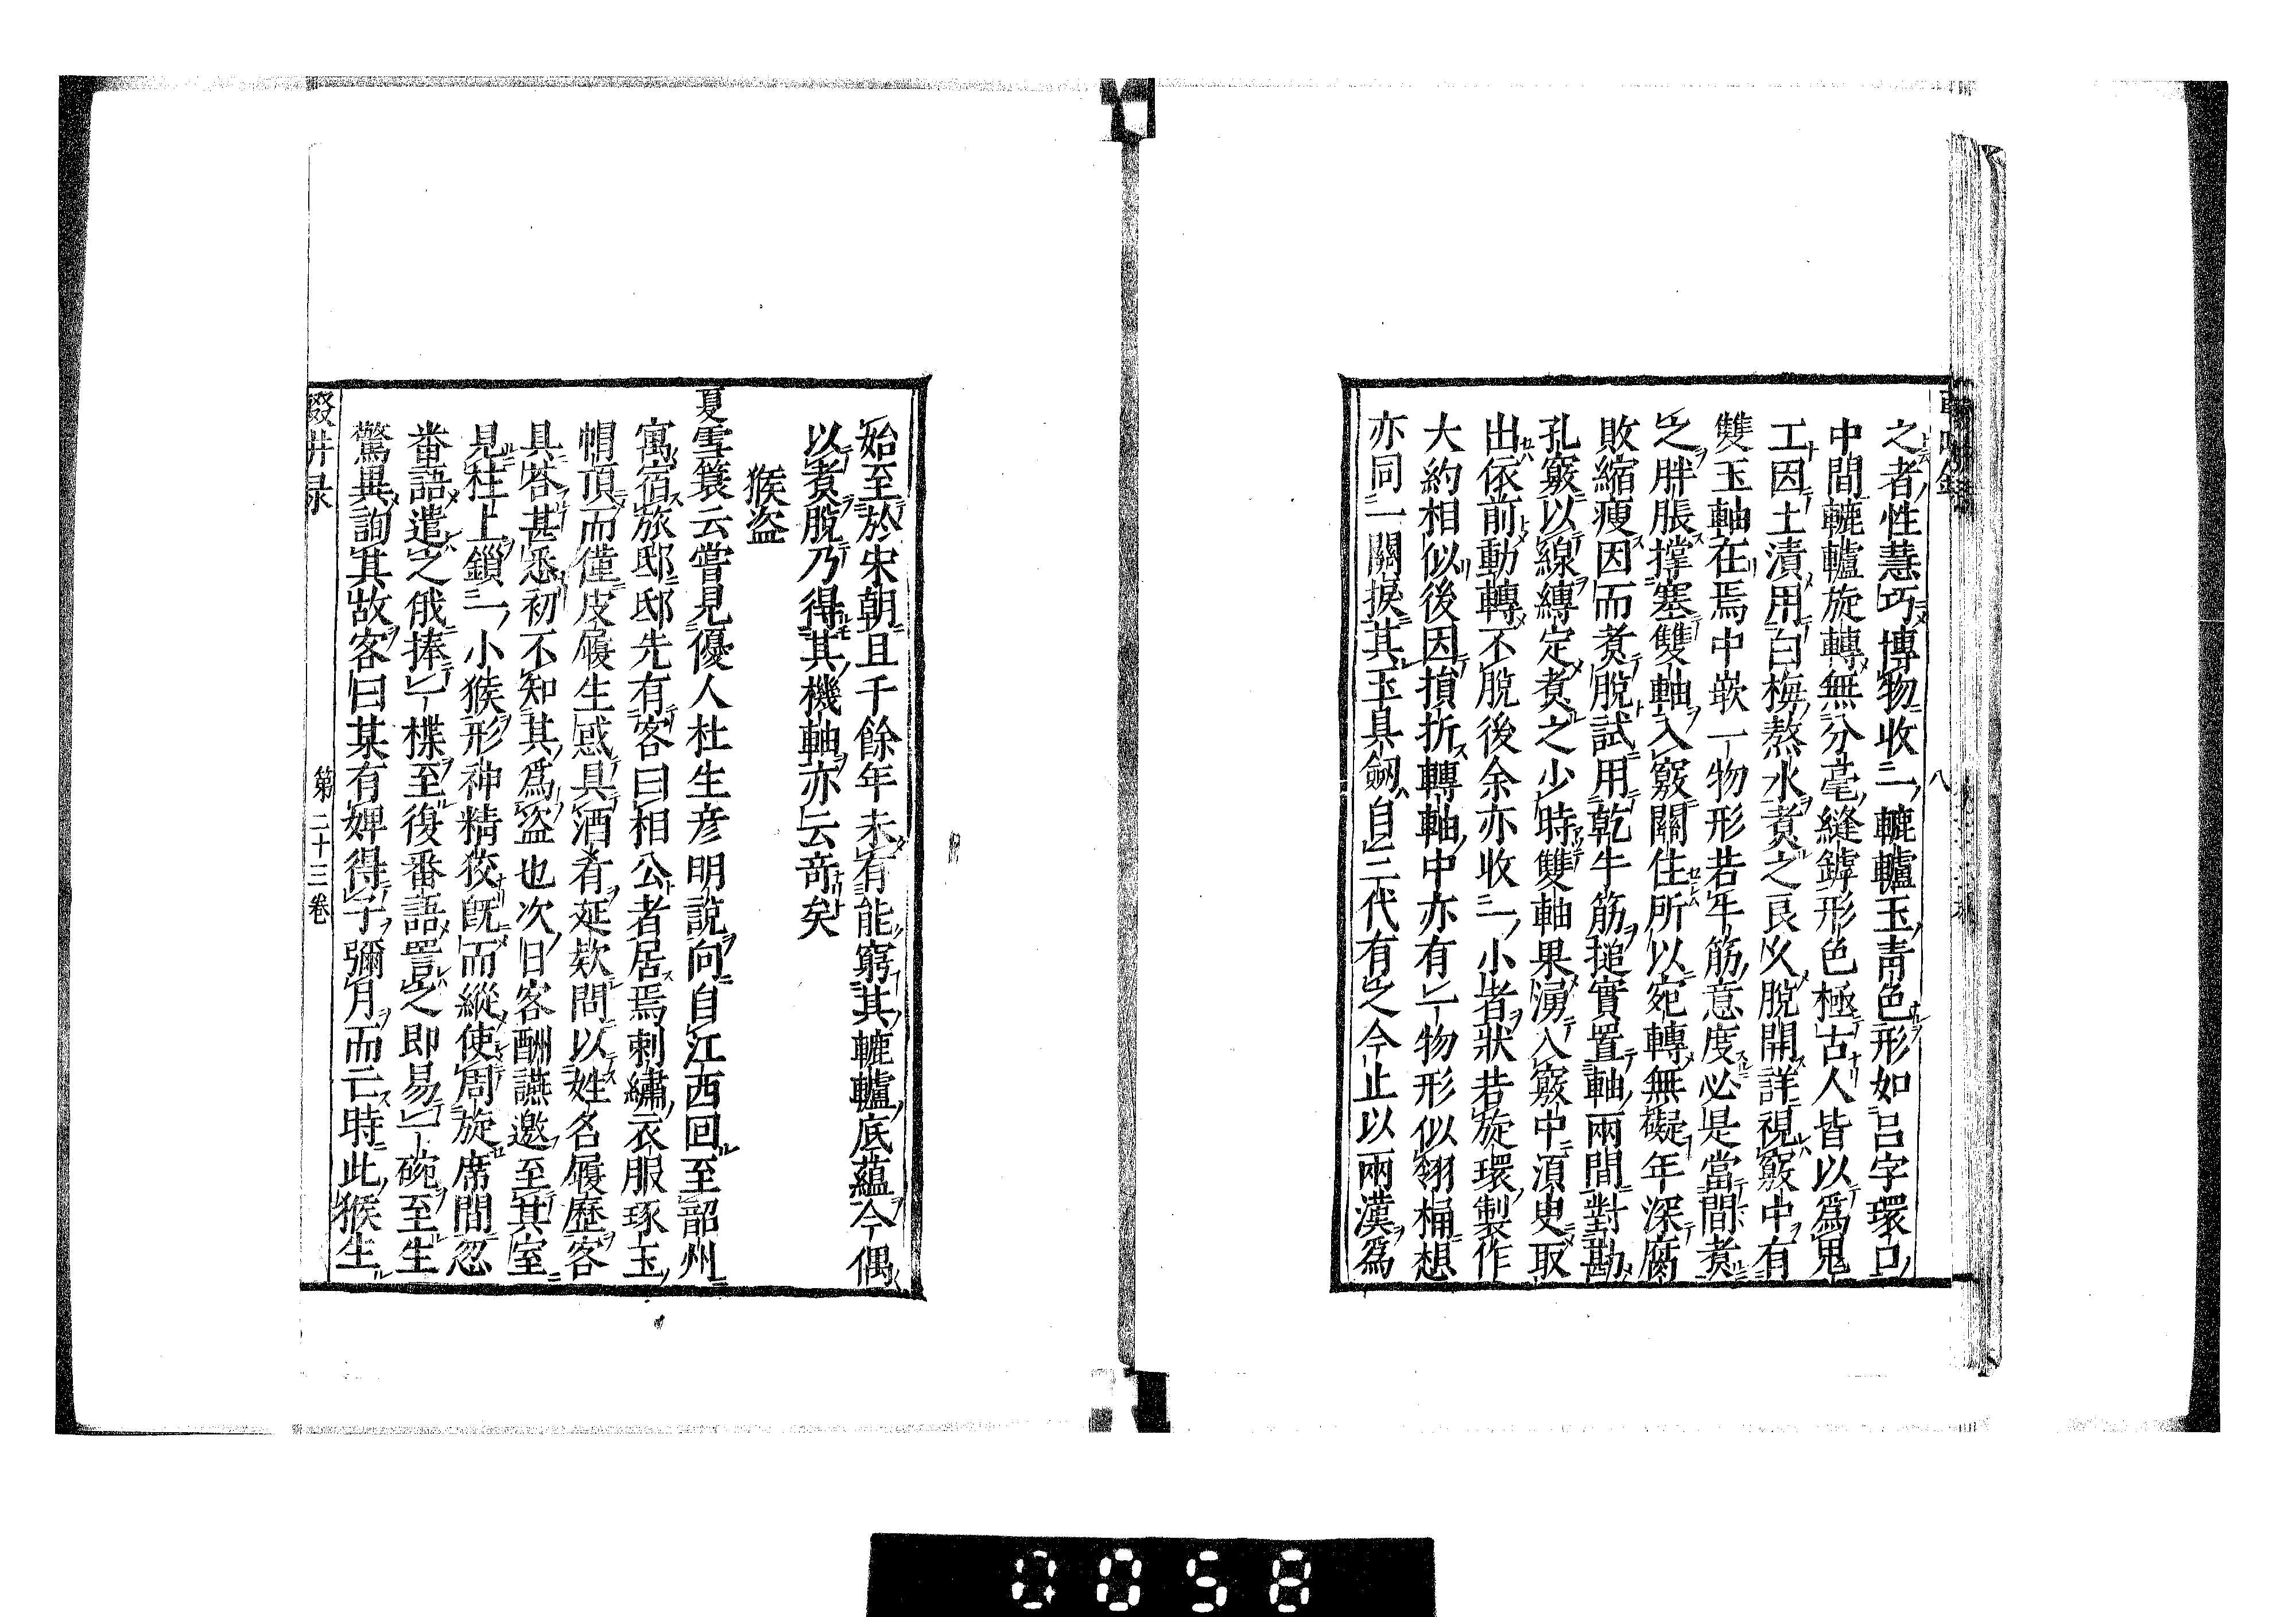 之者性慧巧博物收一轆轤玉青色形如呂字環口
中間轆轤旋轉無分毫縫罅形色極古人皆以爲鬼
工因土漬用白梅熬水煮之良久脫開詳視竅中有
雙玉軸在焉中嵌一物形若牛筋意度必是當間煮
之胖脹撐塞雙軸入竅關住所以宛轉無礙年深腐
敗縮瘦因而煮脫試用乾牛筋搥實置軸兩間對勘
孔竅以線縛定煮之少時雙軸果湧入竅中湏臾取
出依前動轉不脫後余亦收一小者狀若旋環製作
大約相似後因損折轉軸中亦有一物形似翎桶想
亦同一關捩其玉具劒自三代有之今止以兩漢爲
八
始至於宋朝且千餘年未有能窮其轆轤底蘊今偶
以煮脫乃得其機軸亦云竒矣
猴盜
夏雪簑云嘗見優人杜生彦明說向自江西回至韶州
寓宿旅邸邸先有客曰相公者居焉刺繡衣服琢玉
帽頂而僅皮履生惑具酒肴延欵問以姓名履歷客
具答甚悉初不知其爲盜也次日客酬讌邀至其室
見柱上鎖一小猴形神精狡既而縱使周旋席間忽
番語遣之俄捧一楪至復番語詈之即易一碗至生
驚異詢其故客曰某有婢得子彌月而亡時此猴生
輟畊录
第二十三卷
0058